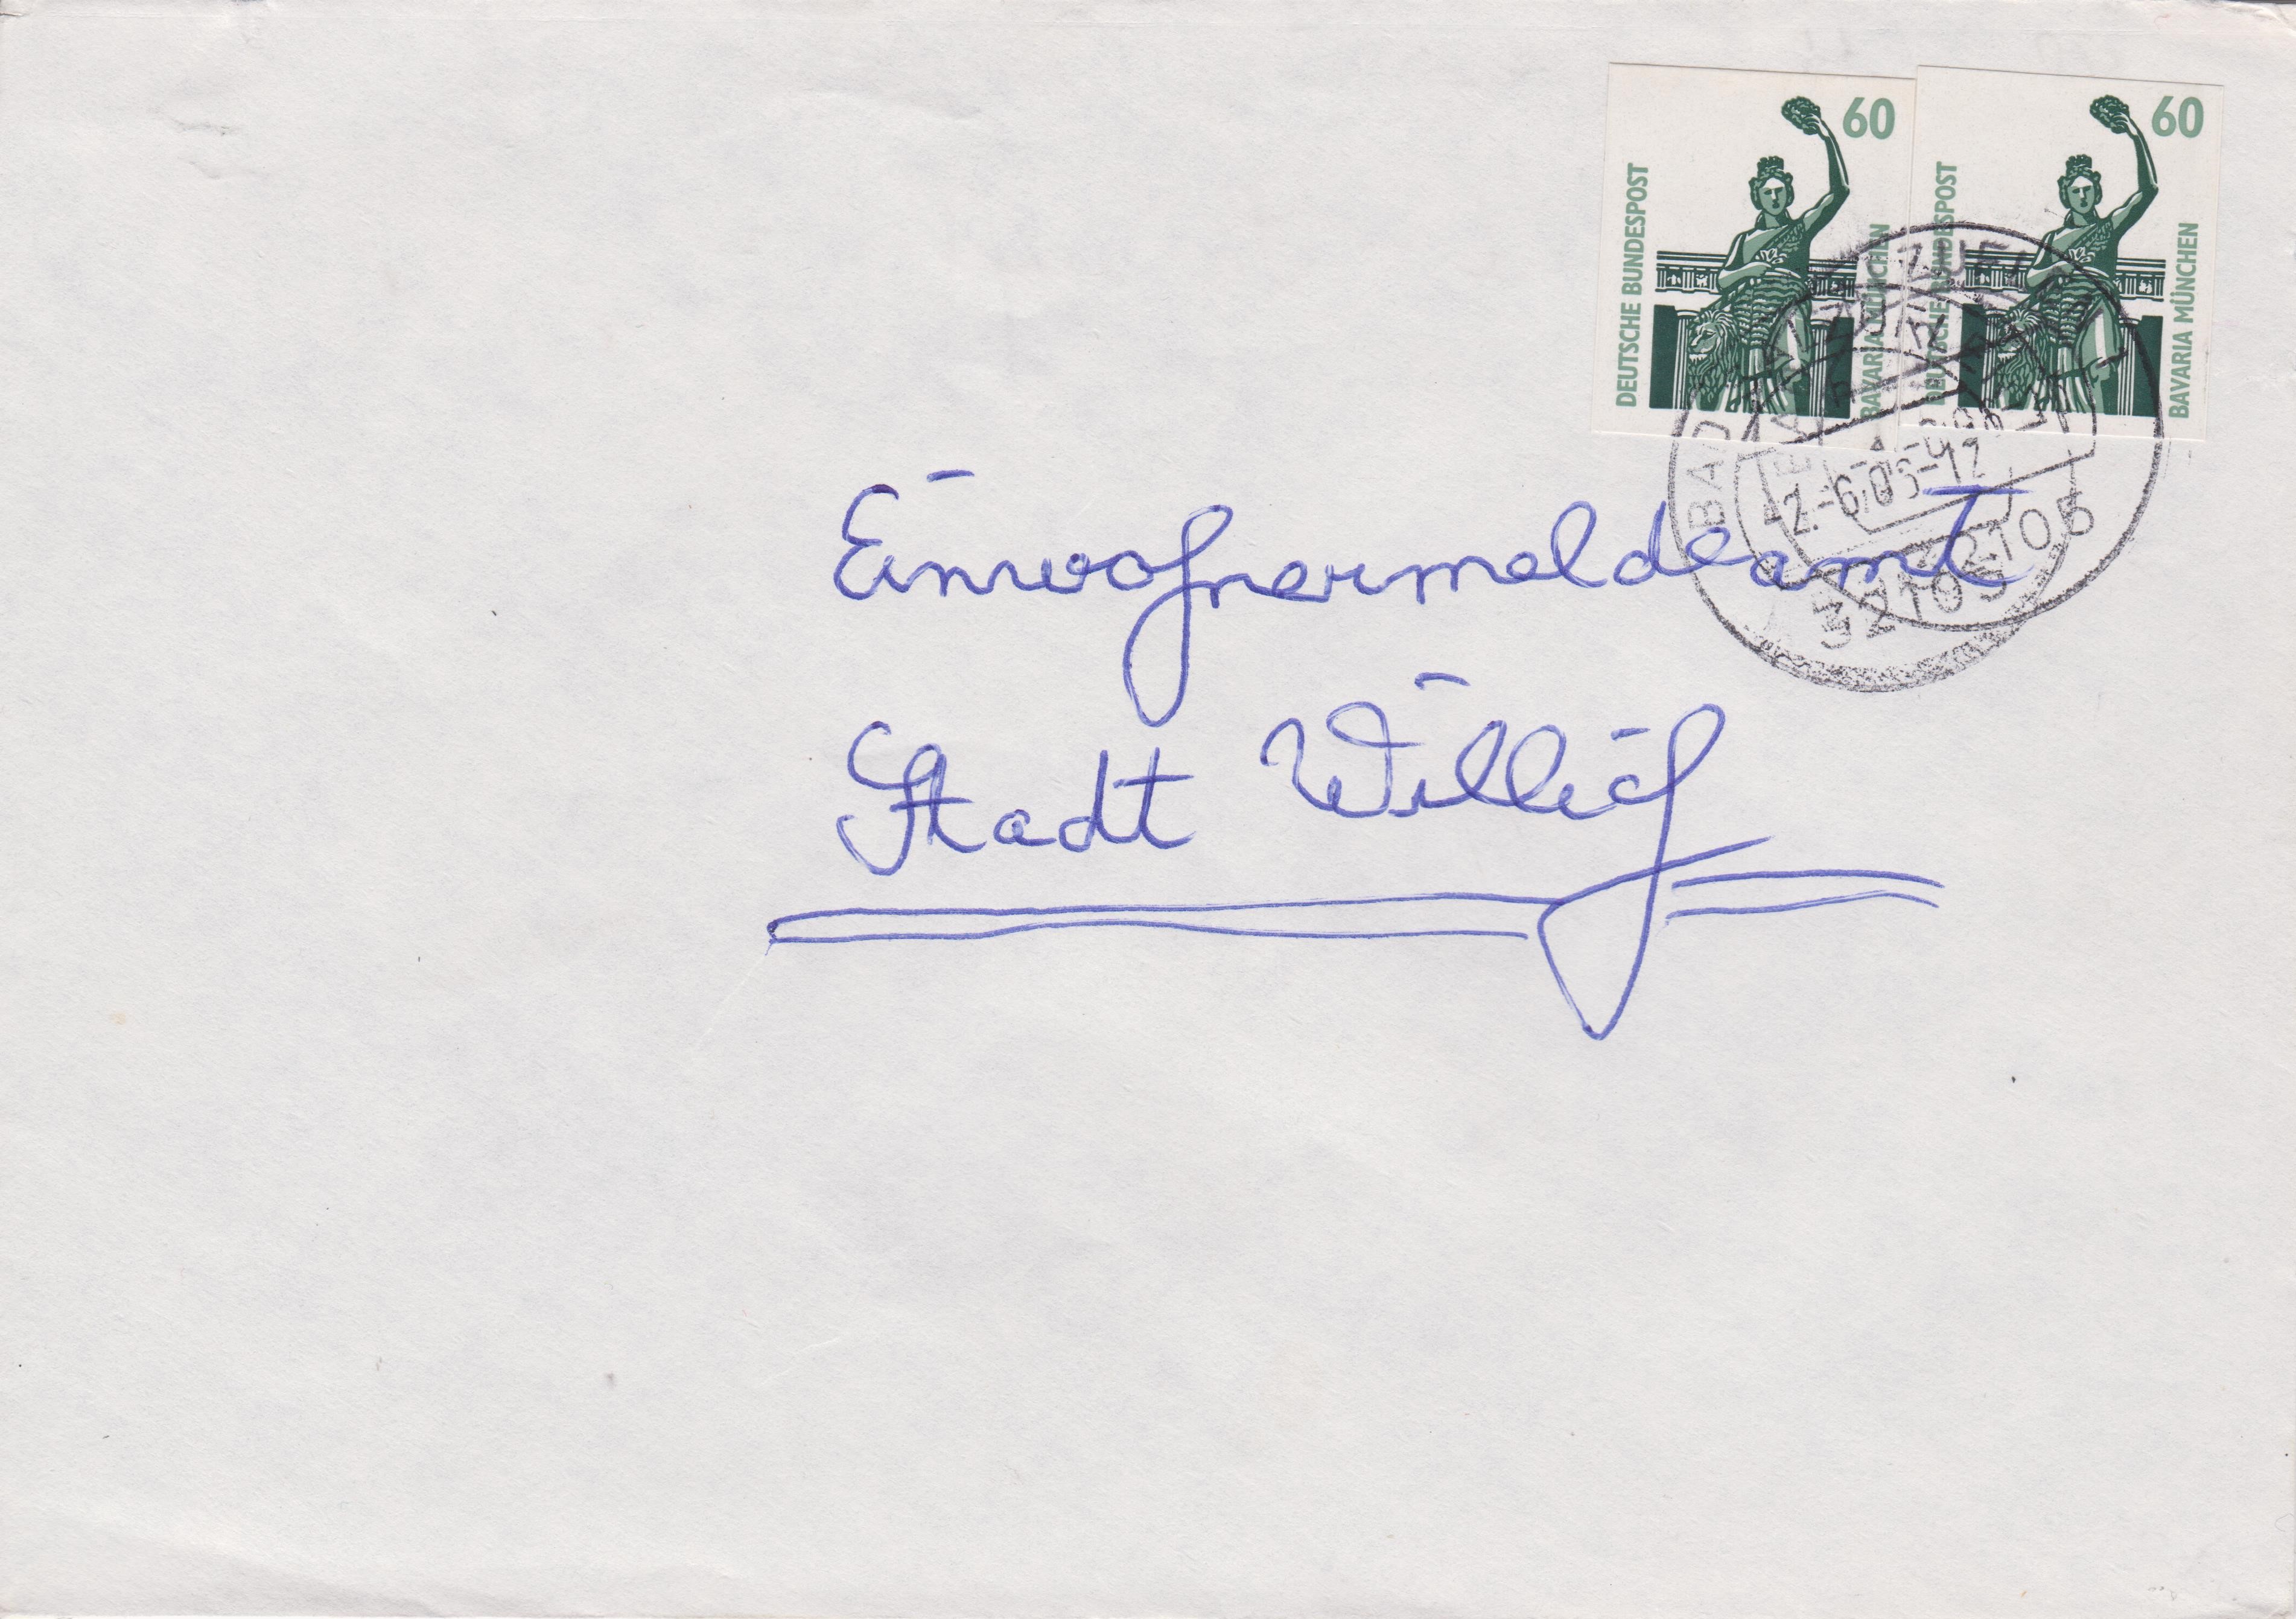 60
DEUTSCHE BUNDESPOST
BAVARIA MÜNCHEN
60
DEUTSCHE BUNDESPOST
BAVARIA MÜNCHEN
BAD
32105
32105
Einwohnermeldeamt
Stadt Willich